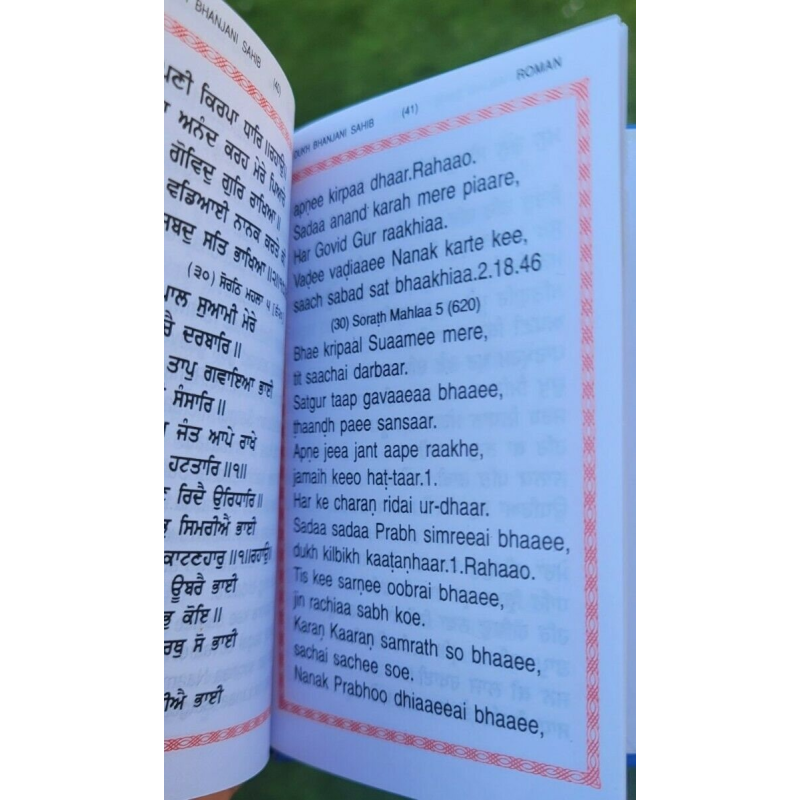 BHANJANI SAHIB (40)
ਕਿਰਪਾ ਧਾਰਿ॥ਰਹਾਉ॥
ਅਨੰਦ ਕਰਹ ਮੇਰੇ ਪਿਆਰੇ
ਗੋਵਿਦੁ ਗੁਰਿ ਰਾਖਿਆ॥
ਵਡਿਆਈ ਨਾਨਕ ਕਰਤੇ ਕੀ
ਸਤਿ ਭਾਖਿਆ॥੨॥
(੩੦) ਸੋਰਠਿ ਮਹਲਾ ੫
ਸੁਆਮੀ ਮੇਰੇ
ਦਰਬਾਰਿ॥
ਤਾਪੁ ਗਵਾਇਆ ਭਾਈ
ਸੰਸਾਰਿ॥
ਜੰਤ ਆਪੇ ਰਾਖੇ
ਹਟਤਾਰਿ॥੧॥
ਰਿਦੈ ਉਰਿਧਾਰਿ॥
ਸਿਮਰੀਐ ਭਾਈ
ਕਾਟਣਹਾਰੁ॥੧॥ਰਹਾਉ॥
ਊਬਰੈ ਭਾਈ
ਕੋਇ॥
ਸੋ ਭਾਈ
ਭਾਈ
DUKH BHANJANI SAHIB (41) ROMAN
apṇee kirpaa dhaar.Rahaao.
Sadaa anand karah mere piaare,
Har Govid Gur raakhiaa.
Vaḍee vaḍiaaee Nanak karte kee,
saach sabad sat bhaakhiaa.2.18.46
(30) Soraṭh Mahlaa 5 (620)
Bhae kripaal Suaamee mere,
tit saachai darbaar.
Satgur taap gavaaeaa bhaaee,
ṭhaandh paee sansaar.
Apṇe jeea jant aape raakhe,
jamaih keeo haṭ-taar.1.
Har ke charaṇ ridai ur-dhaar.
Sadaa sadaa Prabh simreeai bhaaee,
dukh kilbikh kaaṭaṇhaar.1.Rahaao.
Tis kee sarṇee oobrai bhaaee,
jin rachiaa sabh koe.
Karaṇ Kaaraṇ samrath so bhaaee,
sachai sachee soe.
Nanak Prabhoo dhiaaeeai bhaaee,